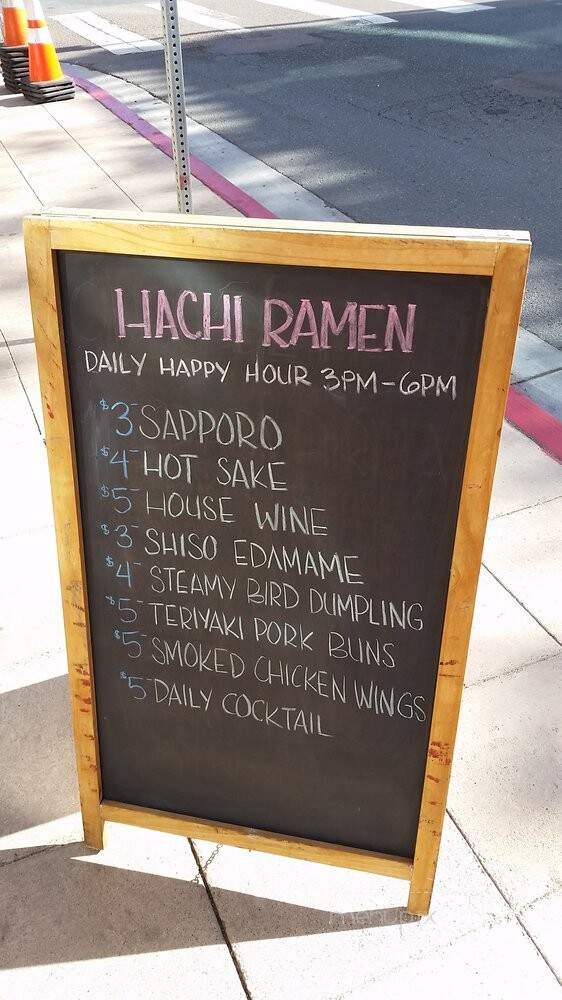 HACHI RAMEN
DAILY HAPPY HOUR 3PM-6PM
$3- SAPPORO
$4- HOT SAKE
$5- HOUSE WINE
$3- SHISO EDAMAME
$4- STEAMY BIRD DUMPLING
$5- TERIYAKI PORK BUNS
$5- SMOKED CHICKEN WINGS
$5- DAILY COCKTAIL
menupix